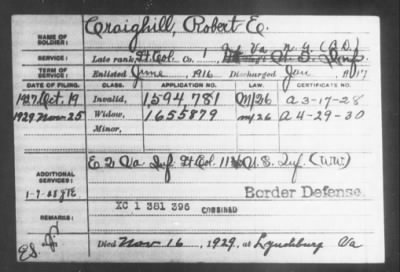 NAME OF SOLDIER: Craighill, Robert E.
SERVICE: Late rank, Lt Col. Co. 1 Va N. G. (B.D.)
TERM OF SERVICE: Enlisted June, 1916 Discharged Jan, 1917
DATE OF FILING. CLASS. APPLICATION NO. LAW. CERTIFICATE NO.
1927 Oct. 19 Invalid, 1594,781 M/26 a 3-17-28
1929 Nov-25 Widow, 1655879 m/26 a 4-29-30
Minor,
ADDITIONAL SERVICES: E 2 Va Inf Lt Col. 116 U.S. Inf. (WW)
Border Defense
REMARKS: XC 1 381 396 COMBINED
Died Nov. 16, 1929, at Lynchburg Va